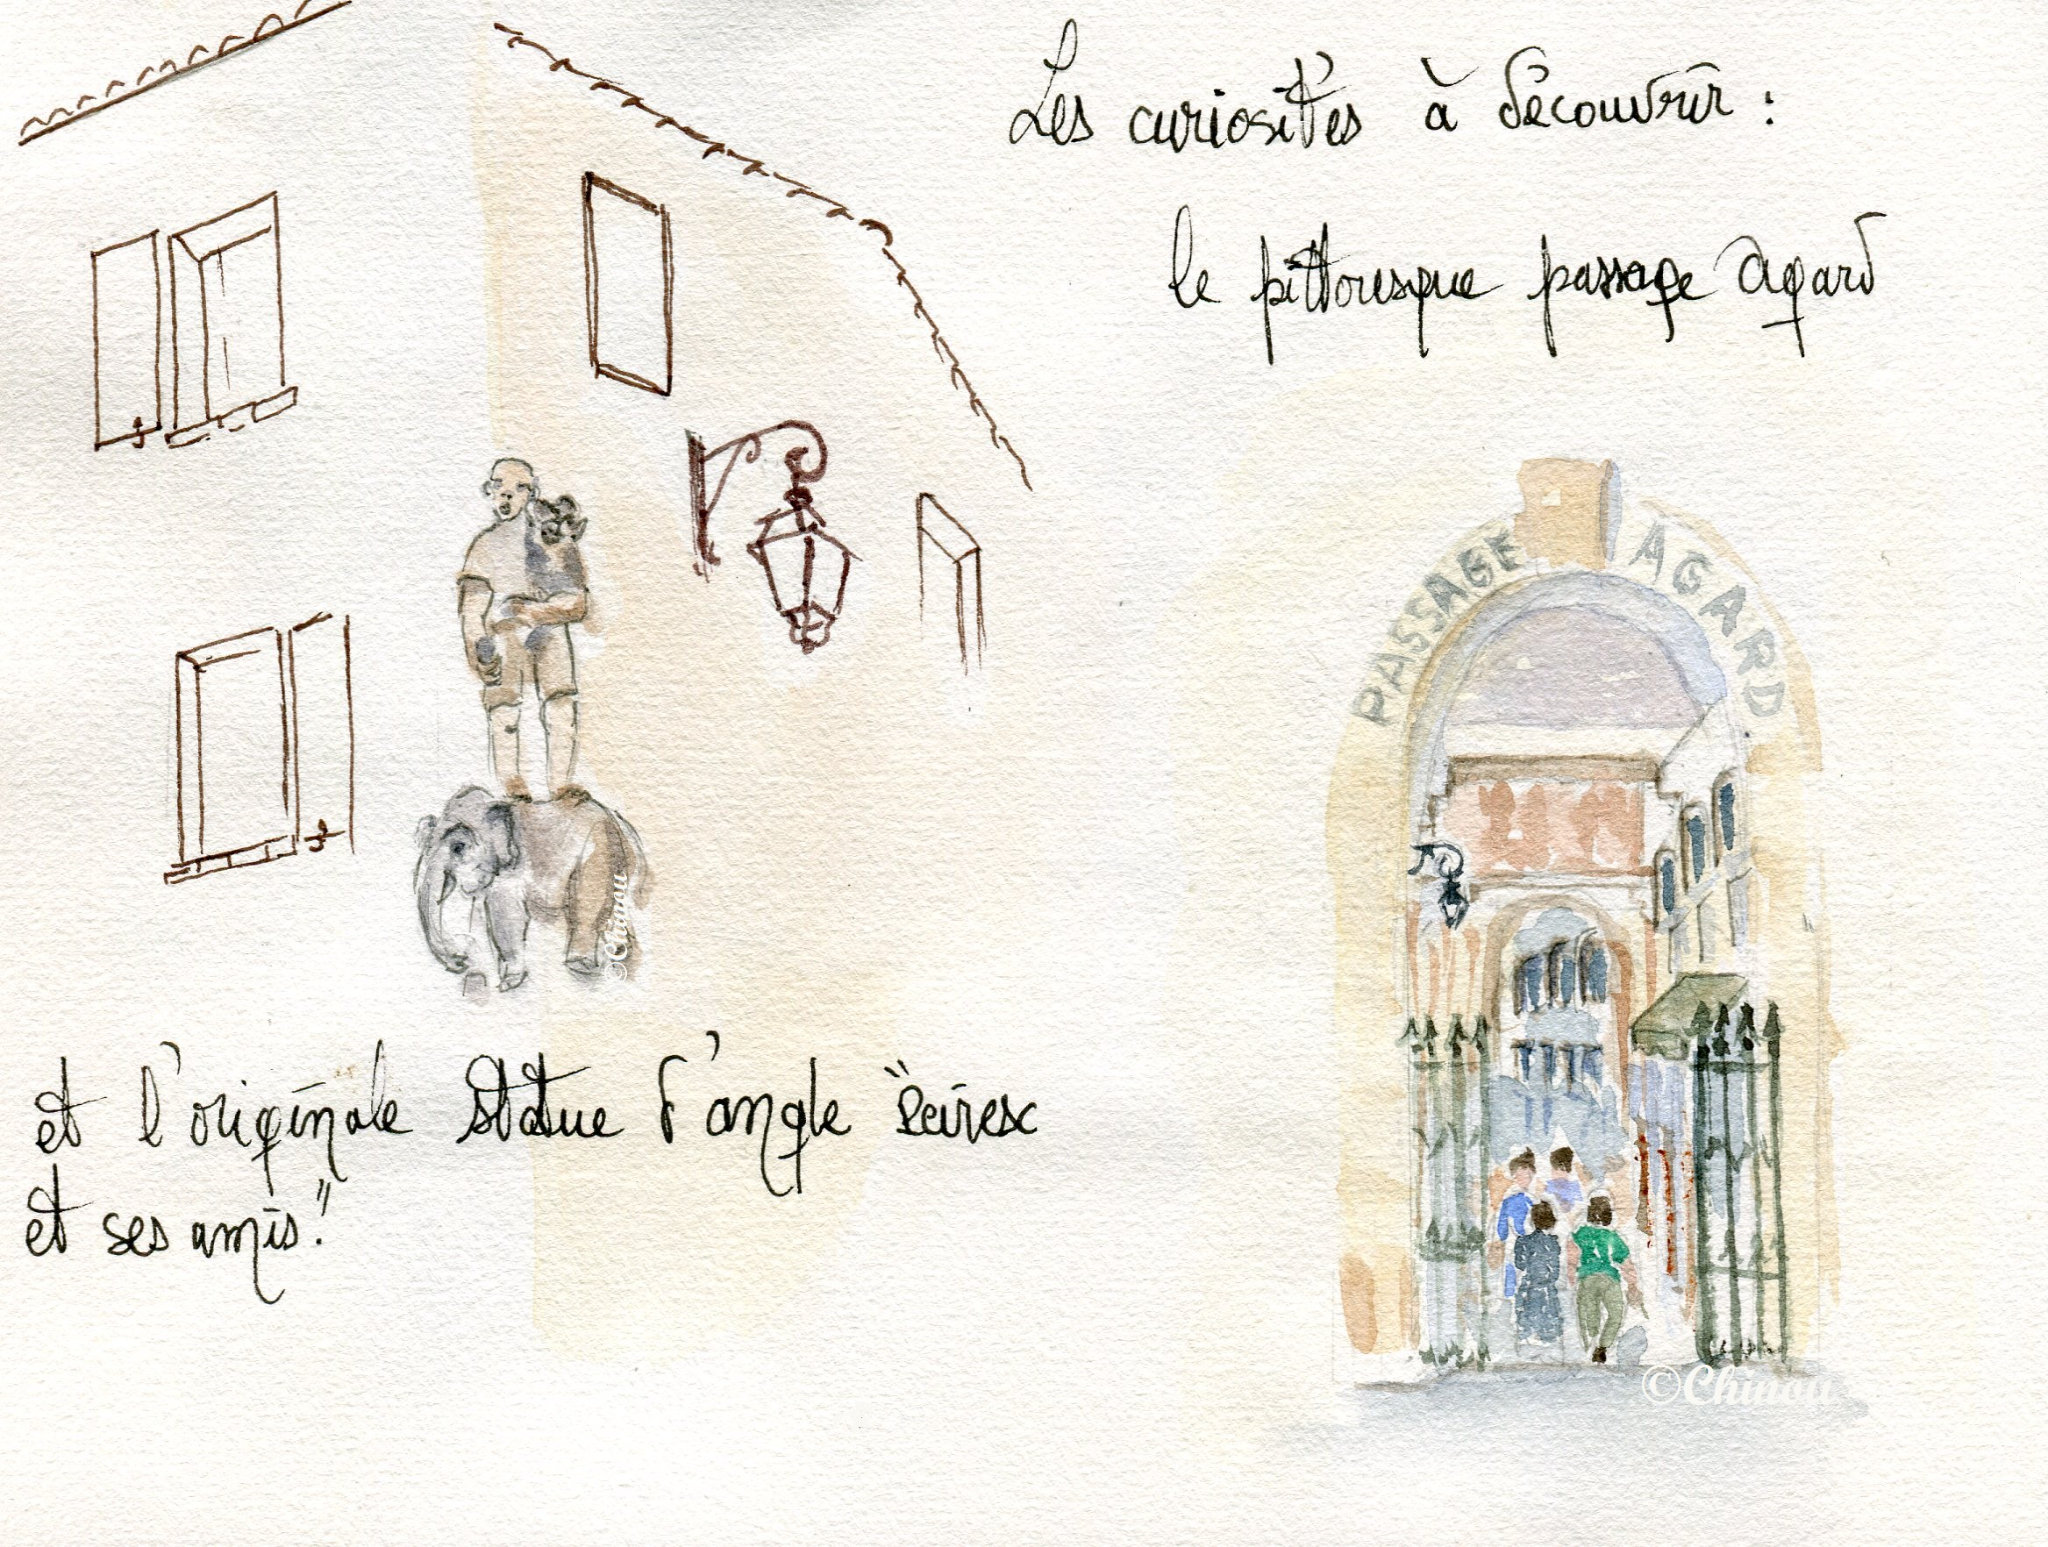 Les curiosités à découvrir :
le pittoresque passage Agard
PASSAGE AGARD
©Chinou
et l'originale statue d'angle "Peiresc
et ses amis."
©Chinou